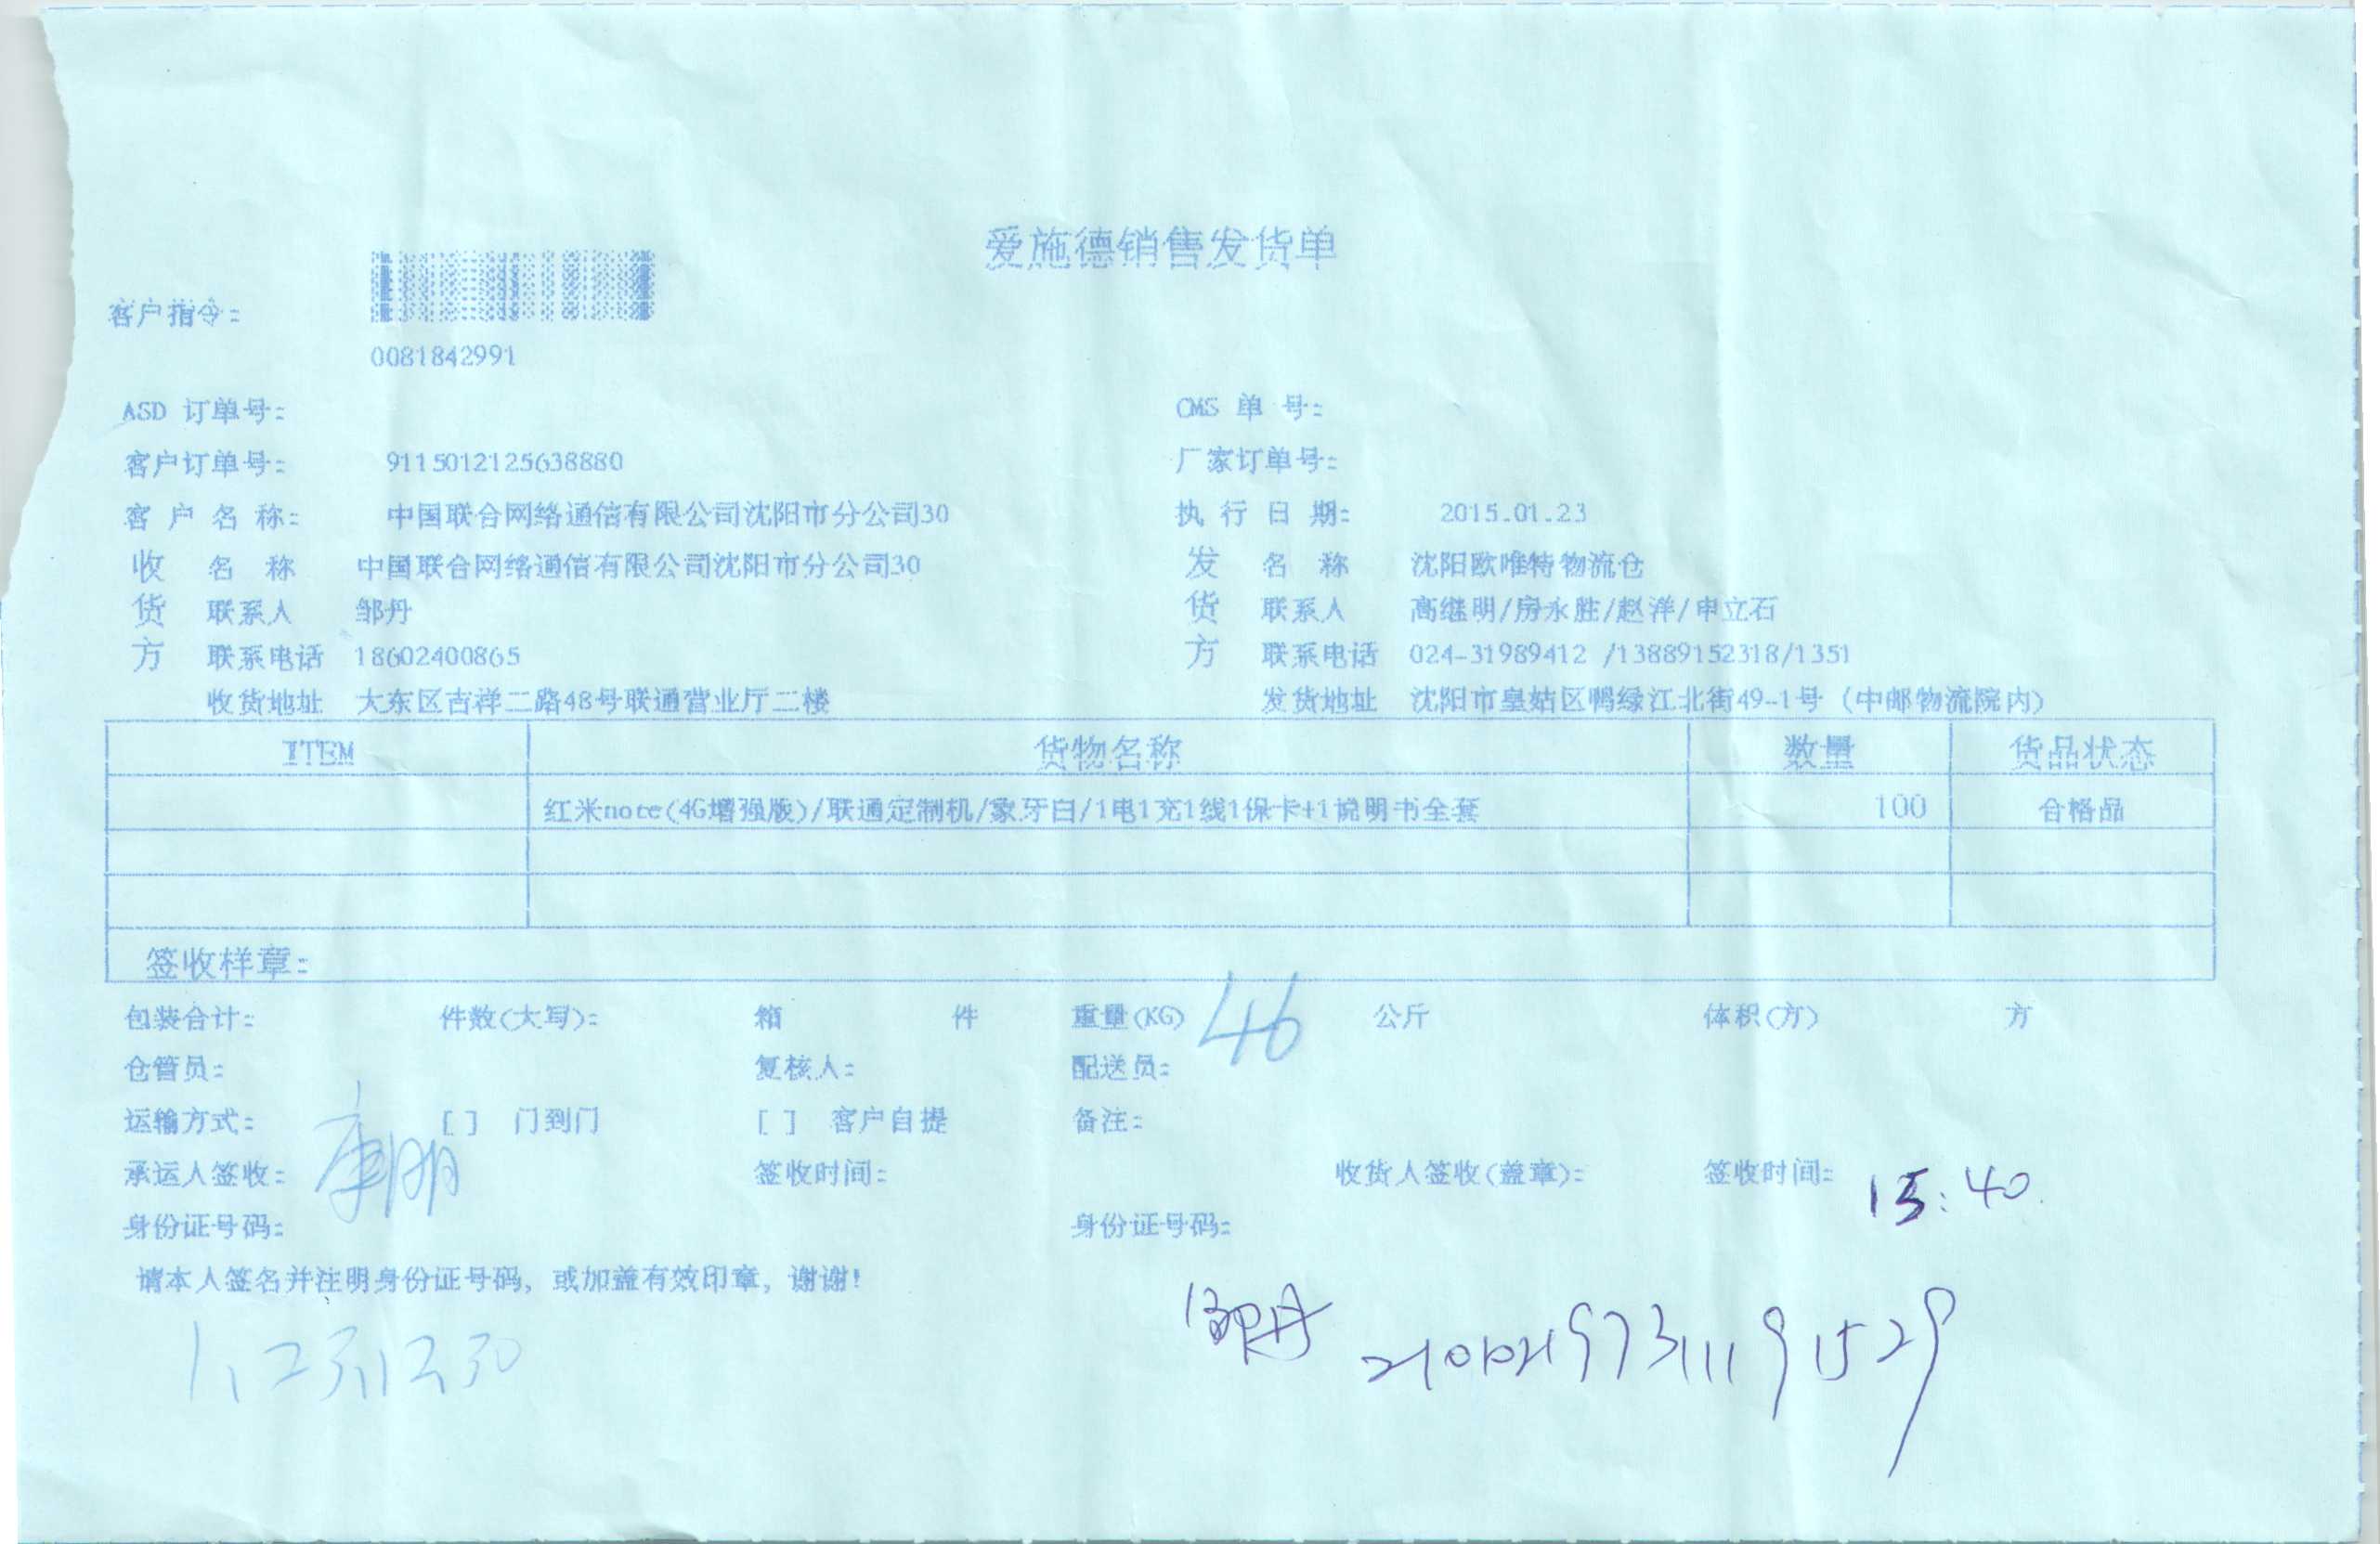 爱施德销售发货单
客户指令:
0081842991
ASD 订单号: CMS 单 号:
客户订单号: 9115012125638880 厂家订单号:
客 户 名 称: 中国联合网络通信有限公司沈阳市分公司30 执 行 日 期: 2015.01.23
收 名 称 中国联合网络通信有限公司沈阳市分公司30 发 名 称 沈阳欧唯特物流仓
货 联系人 邹丹 货 联系人 高继明/房永胜/赵洋/申立石
方 联系电话 18602400865 方 联系电话 024-31989412 /13889152318/1351
收货地址 大东区吉祥二路48号联通营业厅二楼 发货地址 沈阳市皇姑区鸭绿江北街49-1号 (中邮物流院内)
ITEM 货物名称 数量 货品状态
红米note(4G增强版)/联通定制机/象牙白/1电1充1线1保卡+1说明书全套 100 合格品
签收样章:
包装合计: 件数(大写): 箱 件 重量(KG) 46 公斤 体积(方) 方
仓管员: 复核人: 配送员:
运输方式: [ ] 门到门 [ ] 客户自提 备注:
承运人签收: 签收时间: 收货人签收(盖章): 签收时间: 15:40
身份证号码: 身份证号码:
请本人签名并注明身份证号码, 或加盖有效印章, 谢谢!
邹丹